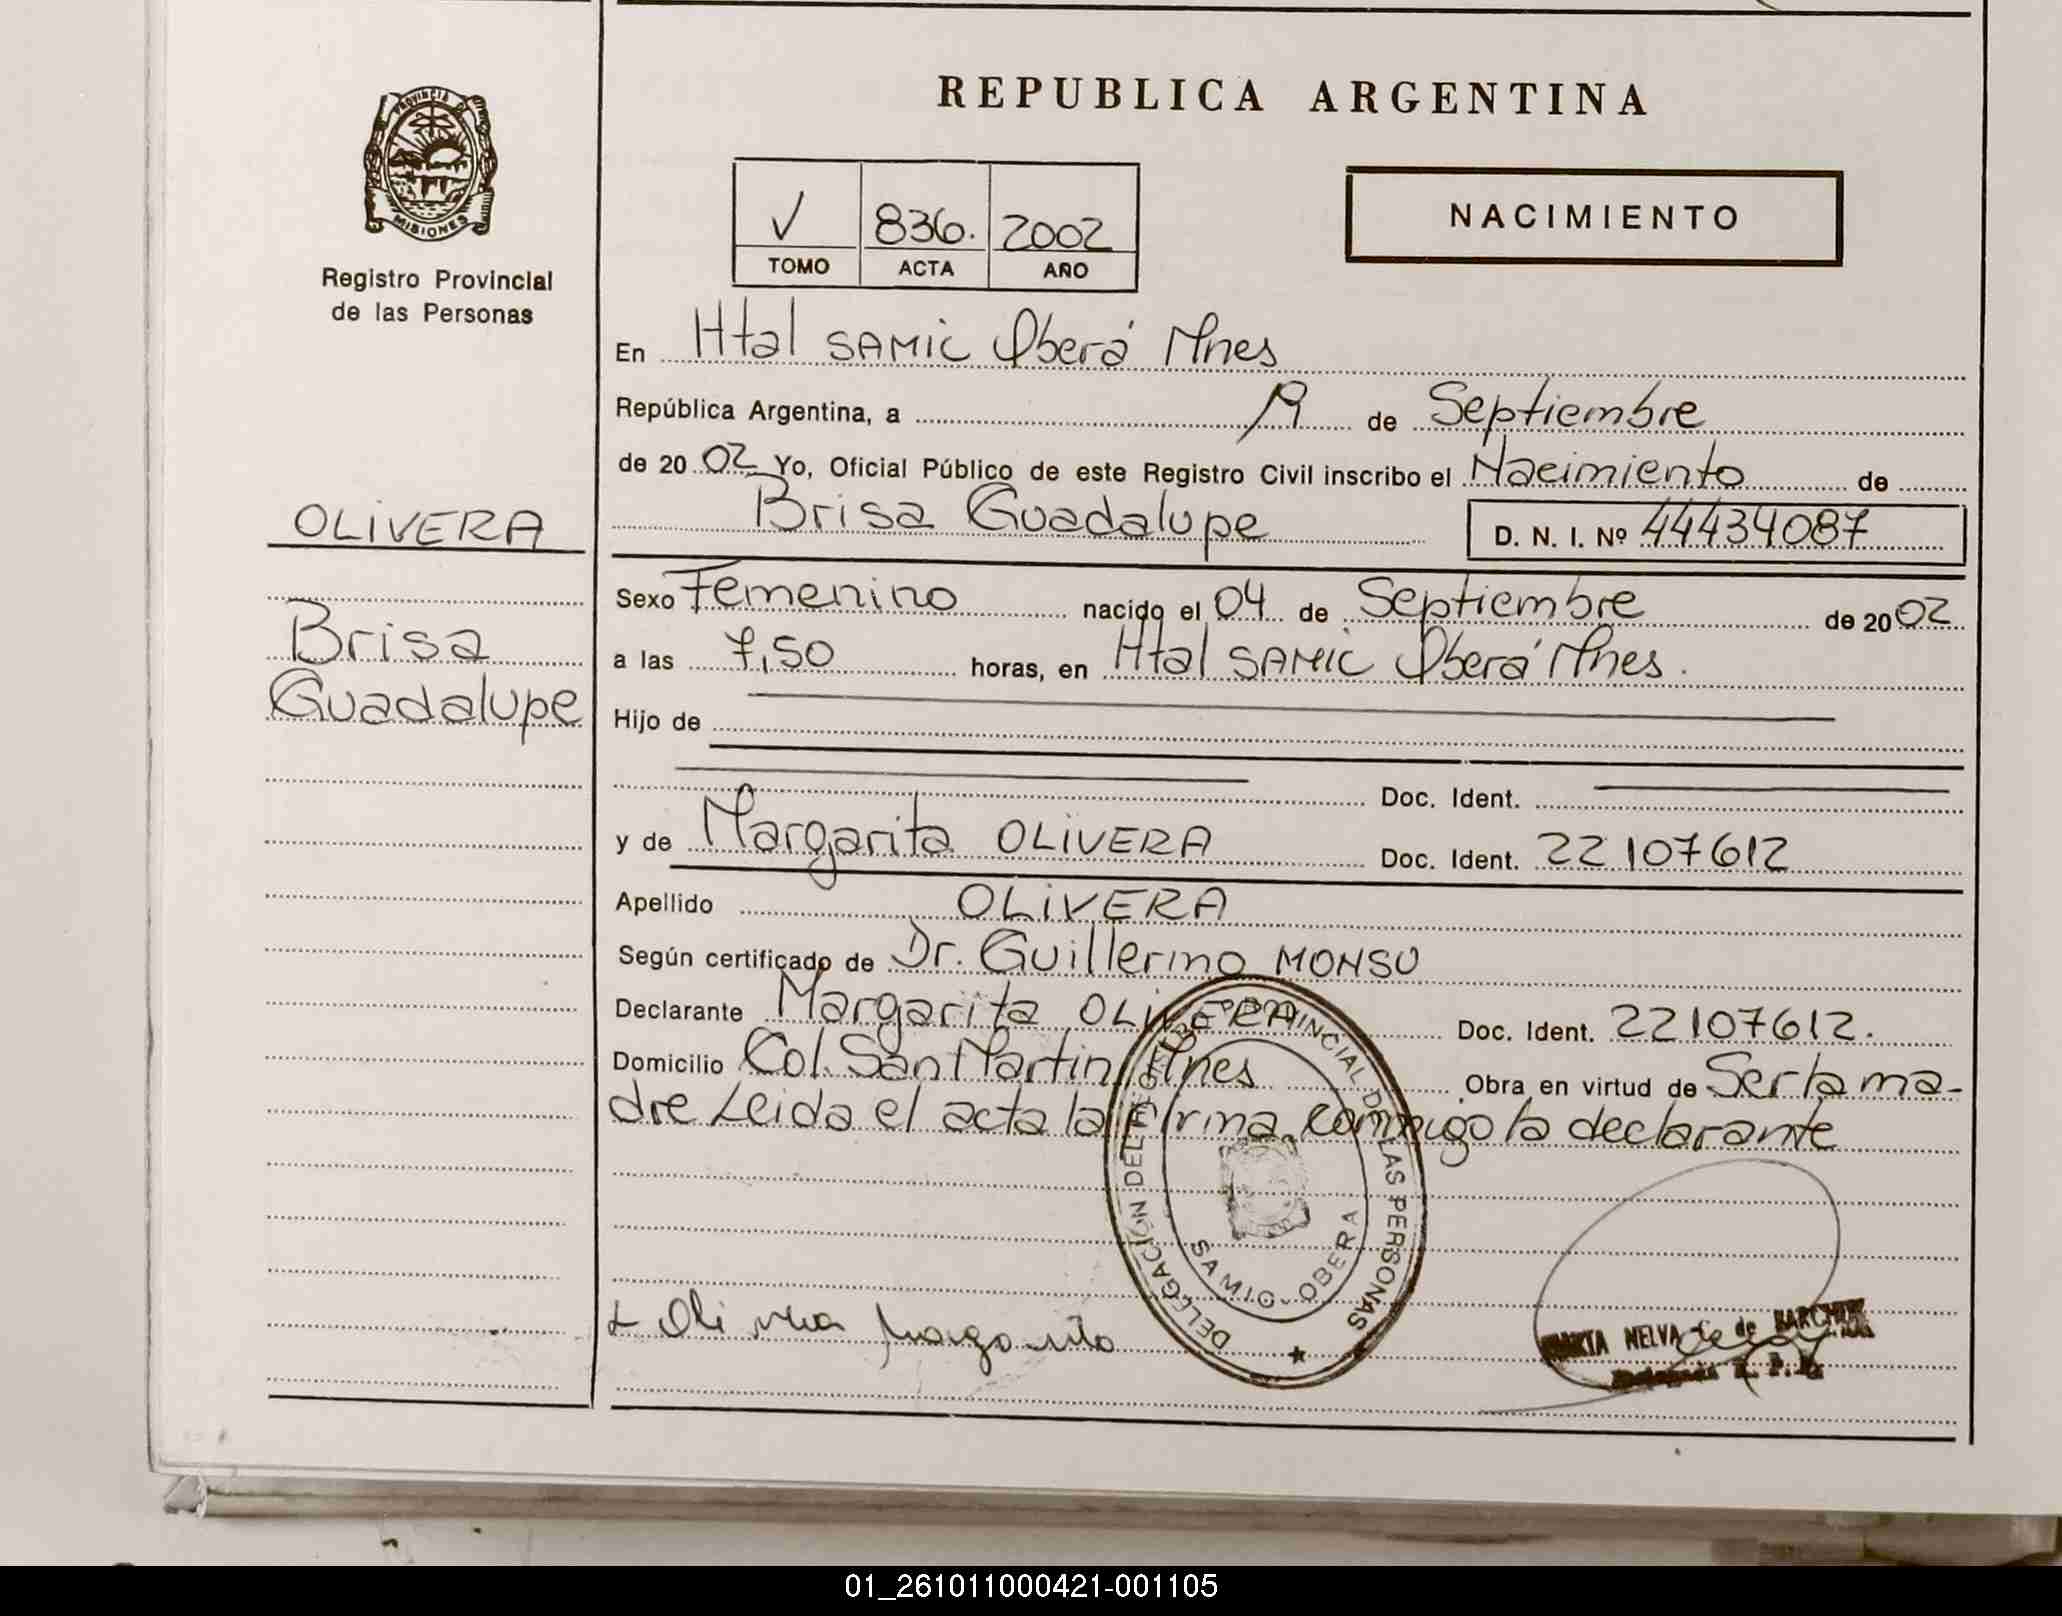 REPUBLICA ARGENTINA
PROVINCIA D
MISIONES
Registro Provincial
de las Personas
V 836. 2002
TOMO ACTA AÑO
NACIMIENTO
En Htal SAMIC Oberá Mnes
República Argentina, a 19 de Septiembre
de 2002 Yo, Oficial Público de este Registro Civil inscribo el Nacimiento de
Brisa Guadalupe D. N. I. Nº 44434087
OLIVERA
Brisa
Guadalupe
Sexo Femenino nacido el 04 de Septiembre de 2002
a las 7,50 horas, en Htal SAMIC Oberá Mnes.
Hijo de
Doc. Ident.
y de Margarita OLIVERA Doc. Ident. 22107612
Apellido OLIVERA
Según certificado de Dr. Guillermo MONSU
Declarante Margarita OLIVERA Doc. Ident. 22107612.
Domicilio Col. San Martin Mnes Obra en virtud de Ser la ma-
dre Leida el acta la firma conmigo la declarante
DELEGACIÓN DEL REGISTRO PROVINCIAL DE LAS PERSONAS
SAMIC-OBERA
Olivera Margarita
MARTA NELVA de
01_261011000421-001105